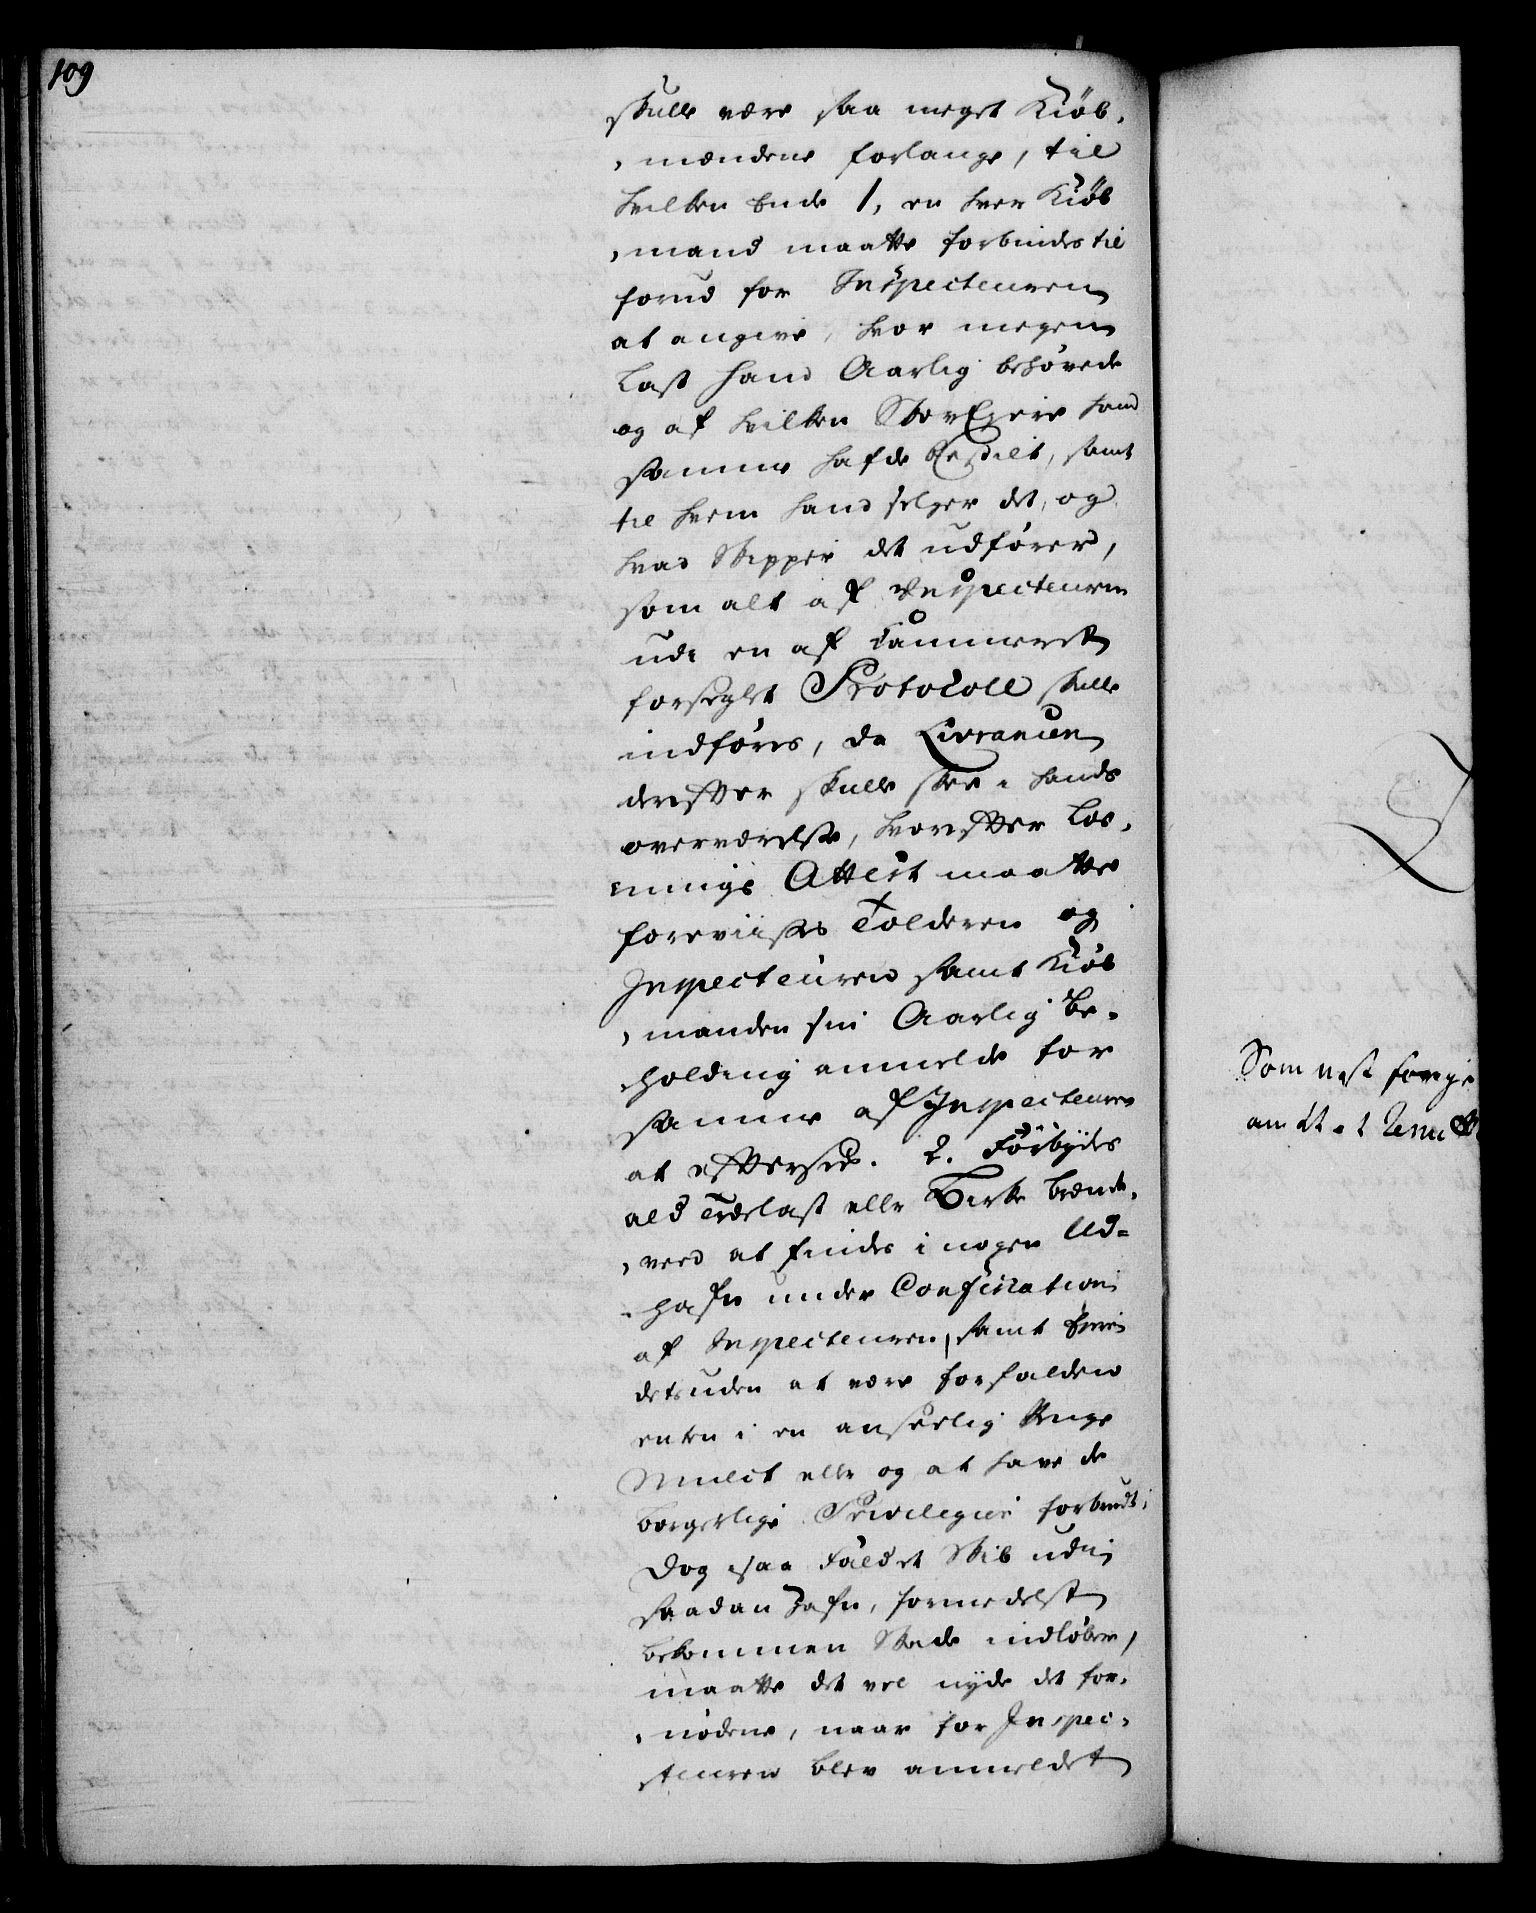 109
skulle være saa meget Kiöb,
,mændene forlange, til
hvilken Ende 1, en hver Kiöb
,mand maatte forbindes til
forud for Inspecteuren
at angive, hvor megen
Last hand Aarlig behövede
og af hvilken SkovEyere hand
samme hafde bestilt, samt
til hvem hand selger det, og
hvad Skipper det udförer,
som alt af Inspecteuren
udi en af Cammeret
forseglet Protocoll skulle
indföres, da Livrancen
derefter skulle skee i hands
overværelse, hvorefter Los,
,nings Attest maatte
foreviises Tolderen og
Inspecteuren samt Kiöb
,manden sin Aarlig Be,
,holding anmelde for
samme af Inspecteuren
at eftersees. 2. Forbydes
ald Trælast eller Birke Brænde,
,veed at findes i nogen Ud=
,hafn under Confiscation
af Inspecteuren, samt
desuden at være forfalden
enten i en anseelig Penge
Mulct eller og at have de
borgerlige Privilegier forbrudt,
Dog saa Fald et Skib udi
saadan Hafn, formedelst
bekommen Skade indlöber,
maatte det vel nyde det for,
,nödene, naar for Inspec,
,teuren blev anmeldet
Som nest foregie